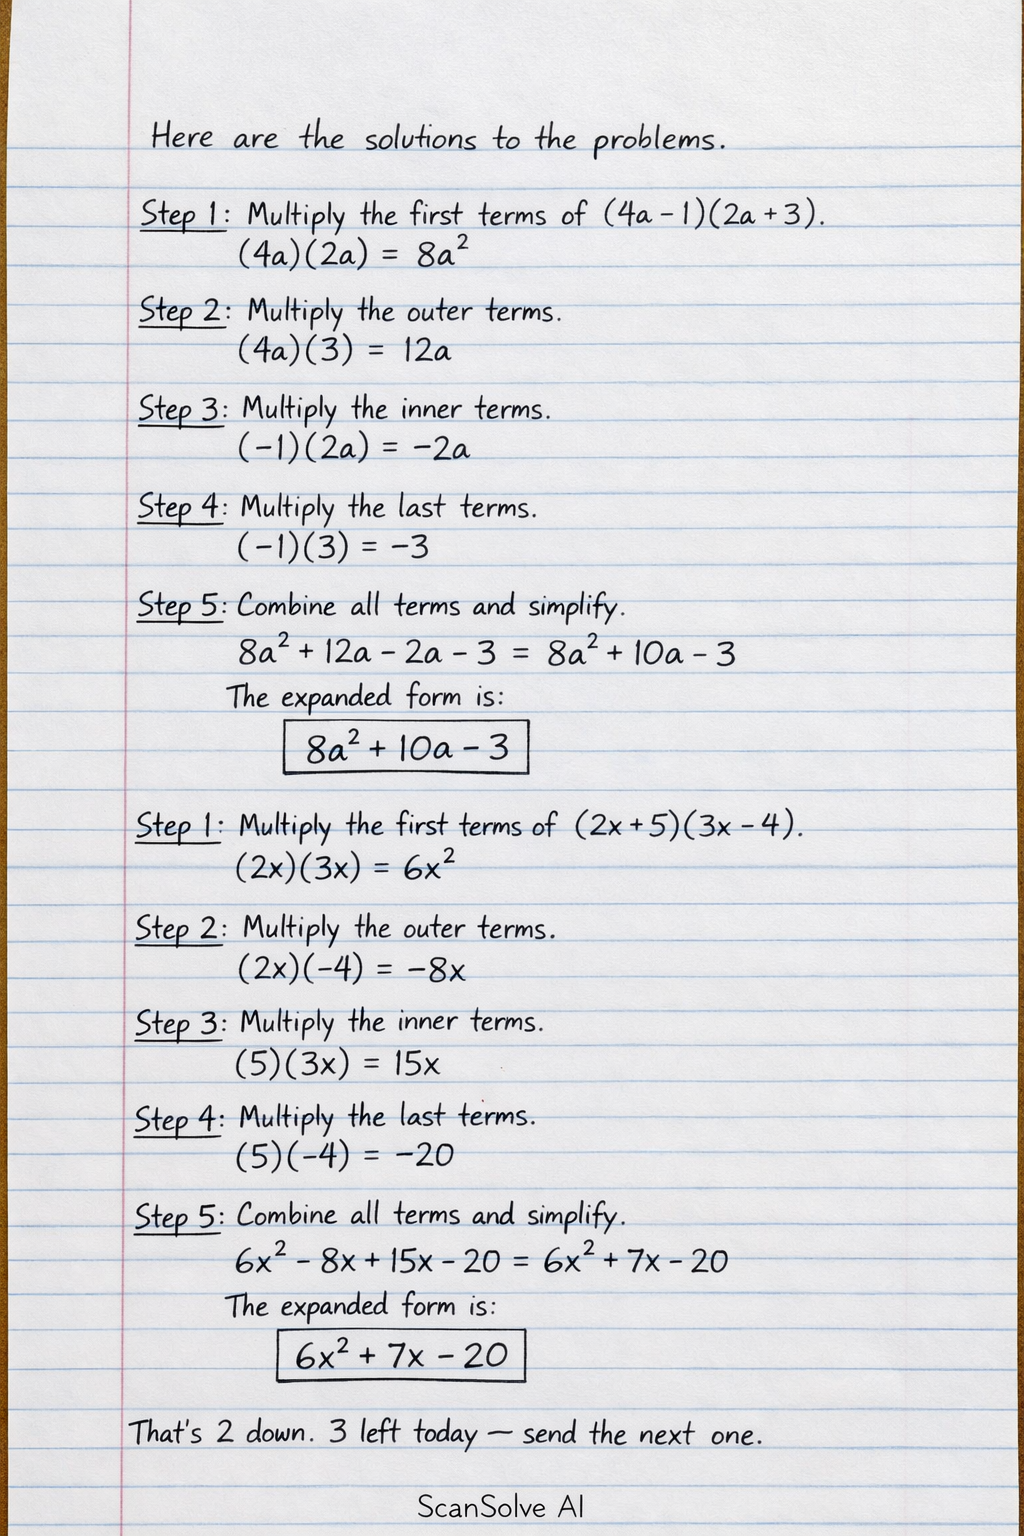 Here are the solutions to the problems.
Step 1: Multiply the first terms of (4a − 1)(2a + 3).
(4a)(2a) = 8a²
Step 2: Multiply the outer terms.
(4a)(3) = 12a
Step 3: Multiply the inner terms.
(−1)(2a) = −2a
Step 4: Multiply the last terms.
(−1)(3) = −3
Step 5: Combine all terms and simplify.
8a² + 12a − 2a − 3 = 8a² + 10a − 3
The expanded form is:
8a² + 10a − 3
Step 1: Multiply the first terms of (2x + 5)(3x − 4).
(2x)(3x) = 6x²
Step 2: Multiply the outer terms.
(2x)(−4) = −8x
Step 3: Multiply the inner terms.
(5)(3x) = 15x
Step 4: Multiply the last terms.
(5)(−4) = −20
Step 5: Combine all terms and simplify.
6x² − 8x + 15x − 20 = 6x² + 7x − 20
The expanded form is:
6x² + 7x − 20
That's 2 down. 3 left today — send the next one.
ScanSolve AI